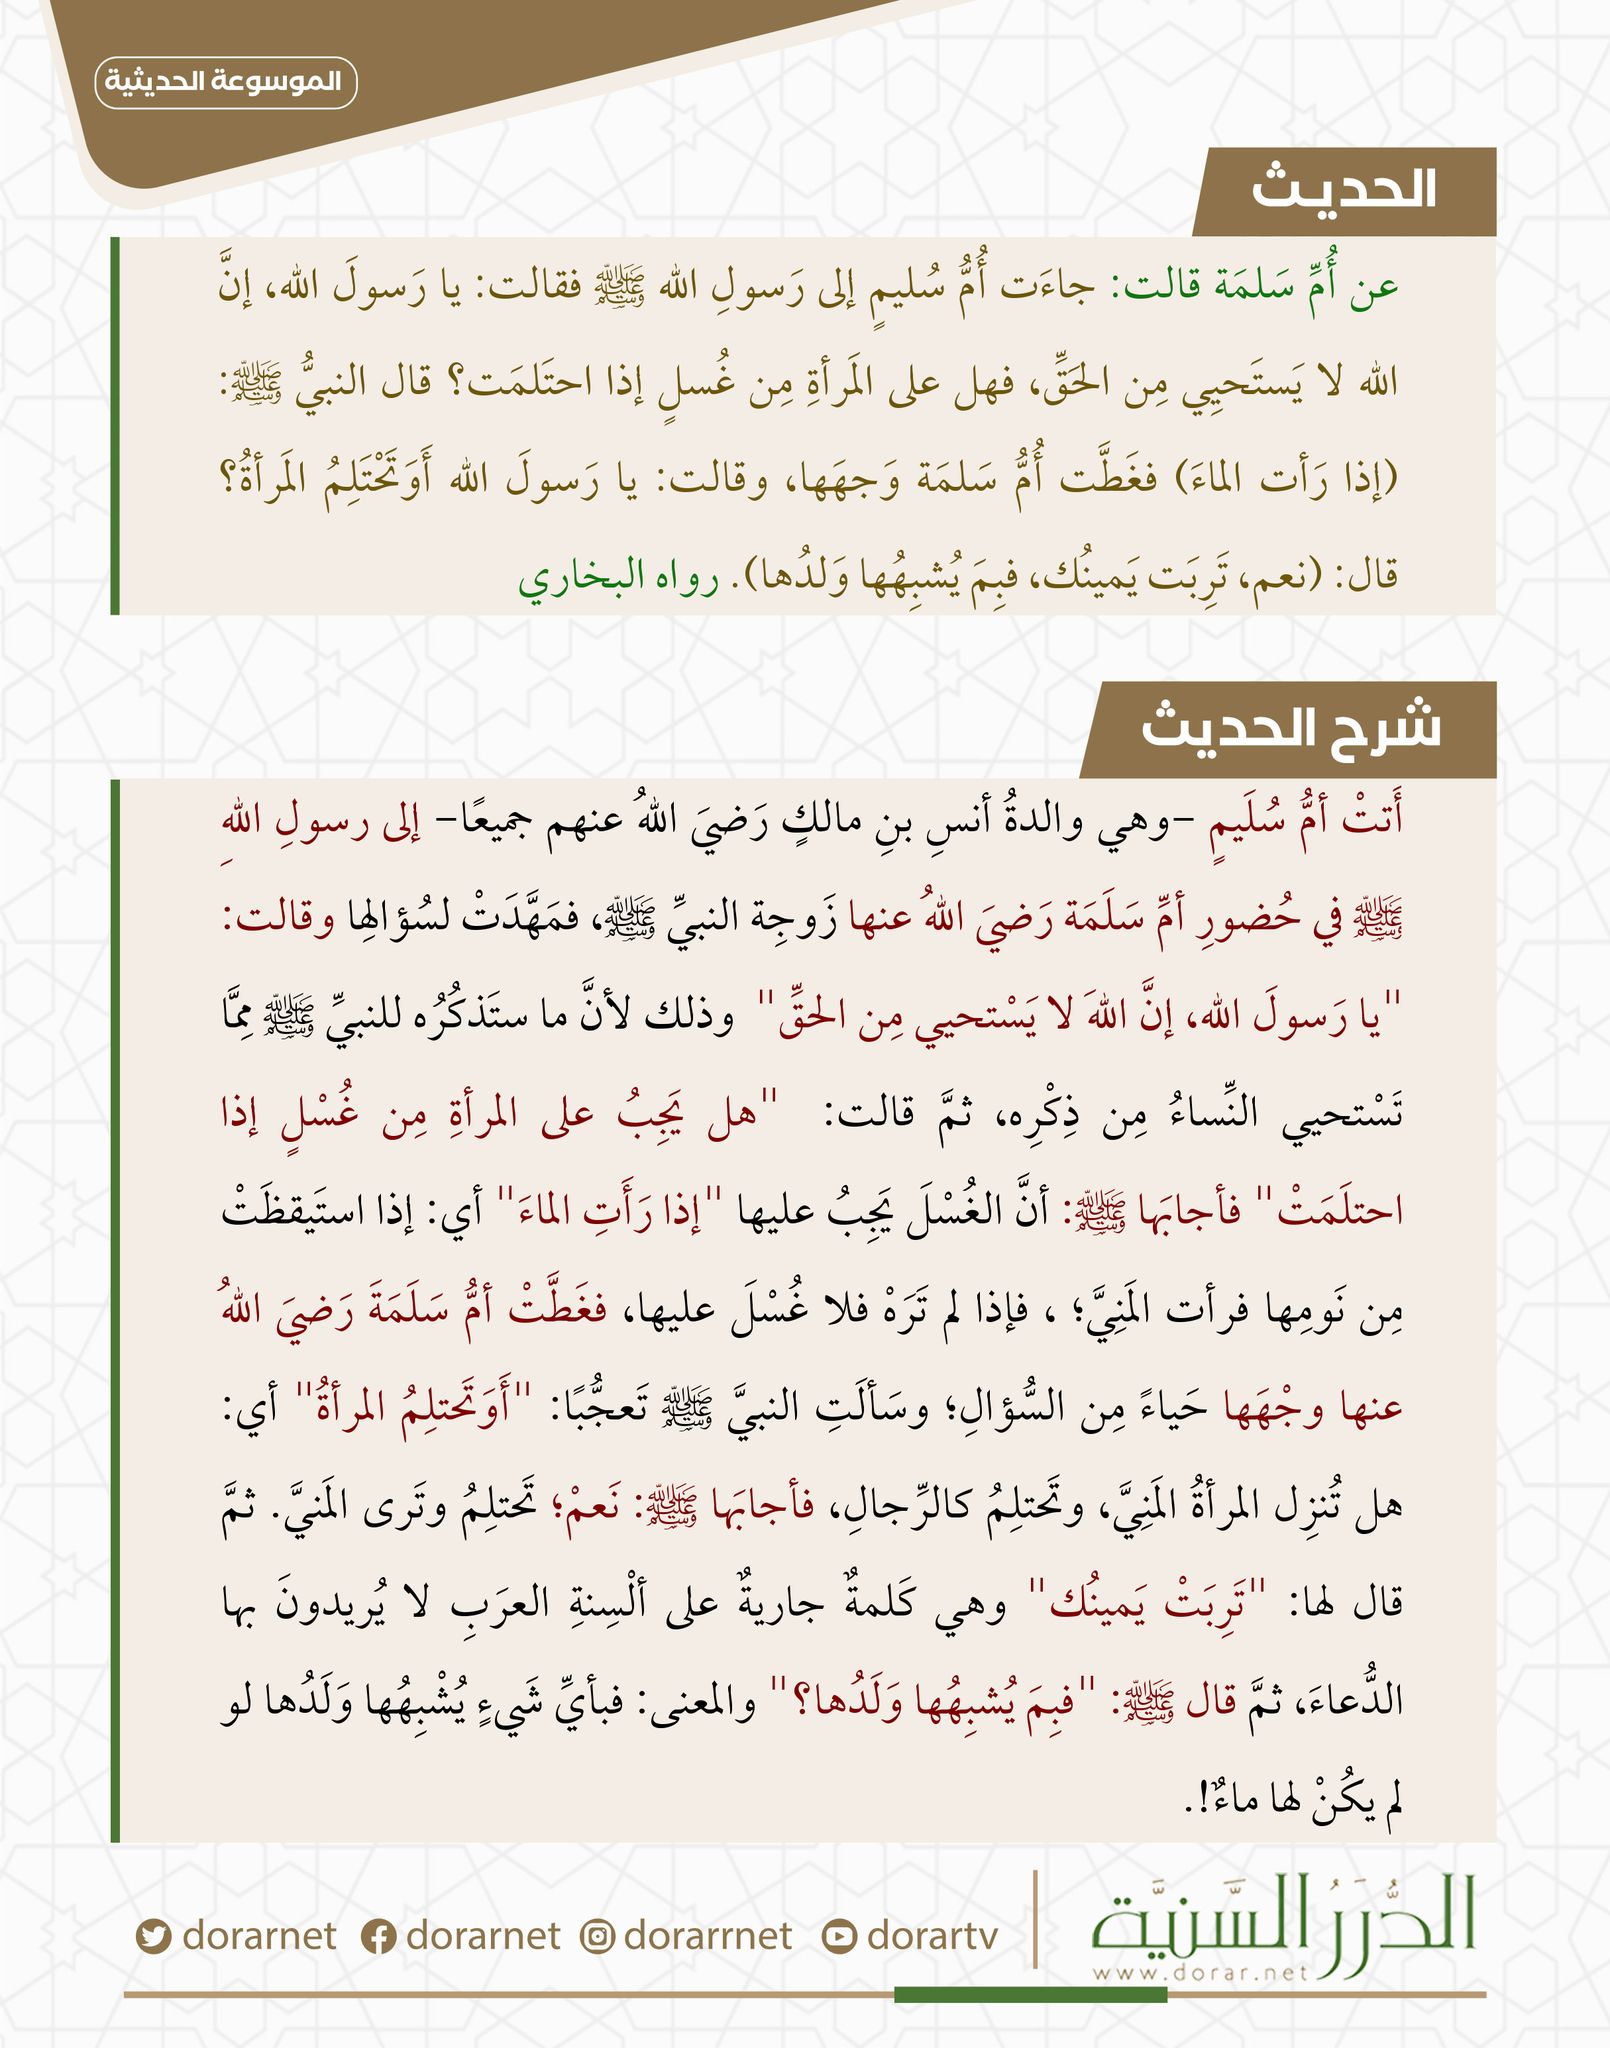 الموسوعة الحديثية
الحديث
عن أُمِّ سَلمَة قالت: جاءَت أُمُّ سُليمٍ إلى رَسولِ الله ﷺ فقالت: يا رَسولَ الله، إنَّ
الله لا يَستَحيِي مِن الحَقِّ، فهل على المَرأةِ مِن غُسلٍ إذا احتَلمَت؟ قال النبيُّ ﷺ:
(إذا رَأت الماءَ) فغَطَّت أُمُّ سَلمَة وَجهَها، وقالت: يا رَسولَ الله أَوَتَحْتَلِمُ المَرأةُ؟
قال: (نعم، تَرِبَت يَمينُك، فبِمَ يُشبِهُها وَلدُها). رواه البخاري
شرح الحديث
أَتتْ أمُّ سُلَيمٍ -وهي والدةُ أنسِ بنِ مالكٍ رَضيَ اللهُ عنهم جميعًا- إلى رسولِ اللهِ
ﷺ في حُضورِ أمِّ سَلَمَة رَضيَ اللهُ عنها زَوجِة النبيِّ ﷺ، فمَهَّدَتْ لسُؤالهِا وقالت:
"يا رَسولَ الله، إنَّ اللهَ لا يَسْتحيي مِن الحقِّ" وذلك لأنَّ ما ستَذكُرُه للنبيِّ ﷺ مِمَّا
تَسْتحيي النِّساءُ مِن ذِكْرِه، ثمَّ قالت: "هل يَجِبُ على المرأةِ مِن غُسْلٍ إذا
احتلَمَتْ" فأجابَها ﷺ: أنَّ الغُسْلَ يَجِبُ عليها "إذا رَأَتِ الماءَ" أي: إذا استَيقظَتْ
مِن نَومِها فرأت المَنِيَّ؛ ، فإذا لم تَرَهْ فلا غُسْلَ عليها، فغَطَّتْ أمُّ سَلَمَةَ رَضيَ اللهُ
عنها وجْهَها حَياءً مِن السُّؤالِ؛ وسَألَتِ النبيَّ ﷺ تَعجُّبًا: "أَوَتَحتلِمُ المرأةُ" أي:
هل تُنزِل المرأةُ المَنِيَّ، وتَحتلِمُ كالرِّجالِ، فأجابَها ﷺ: نَعمْ؛ تَحتلِمُ وتَرى المَنيَّ. ثمَّ
قال لها: "تَرِبَتْ يَمينُك" وهي كَلمةٌ جاريةٌ على ألْسِنةِ العرَبِ لا يُريدونَ بها
الدُّعاءَ، ثمَّ قال ﷺ: "فبِمَ يُشبِهُها وَلَدُها؟" والمعنى: فبأيِّ شَيءٍ يُشْبِهُها وَلَدُها لو
لم يكُنْ لها ماءٌ!.
dorarnet dorarnet dorarrnet dorartv
الدُّرَرُ السَّنيَّة
www.dorar.net